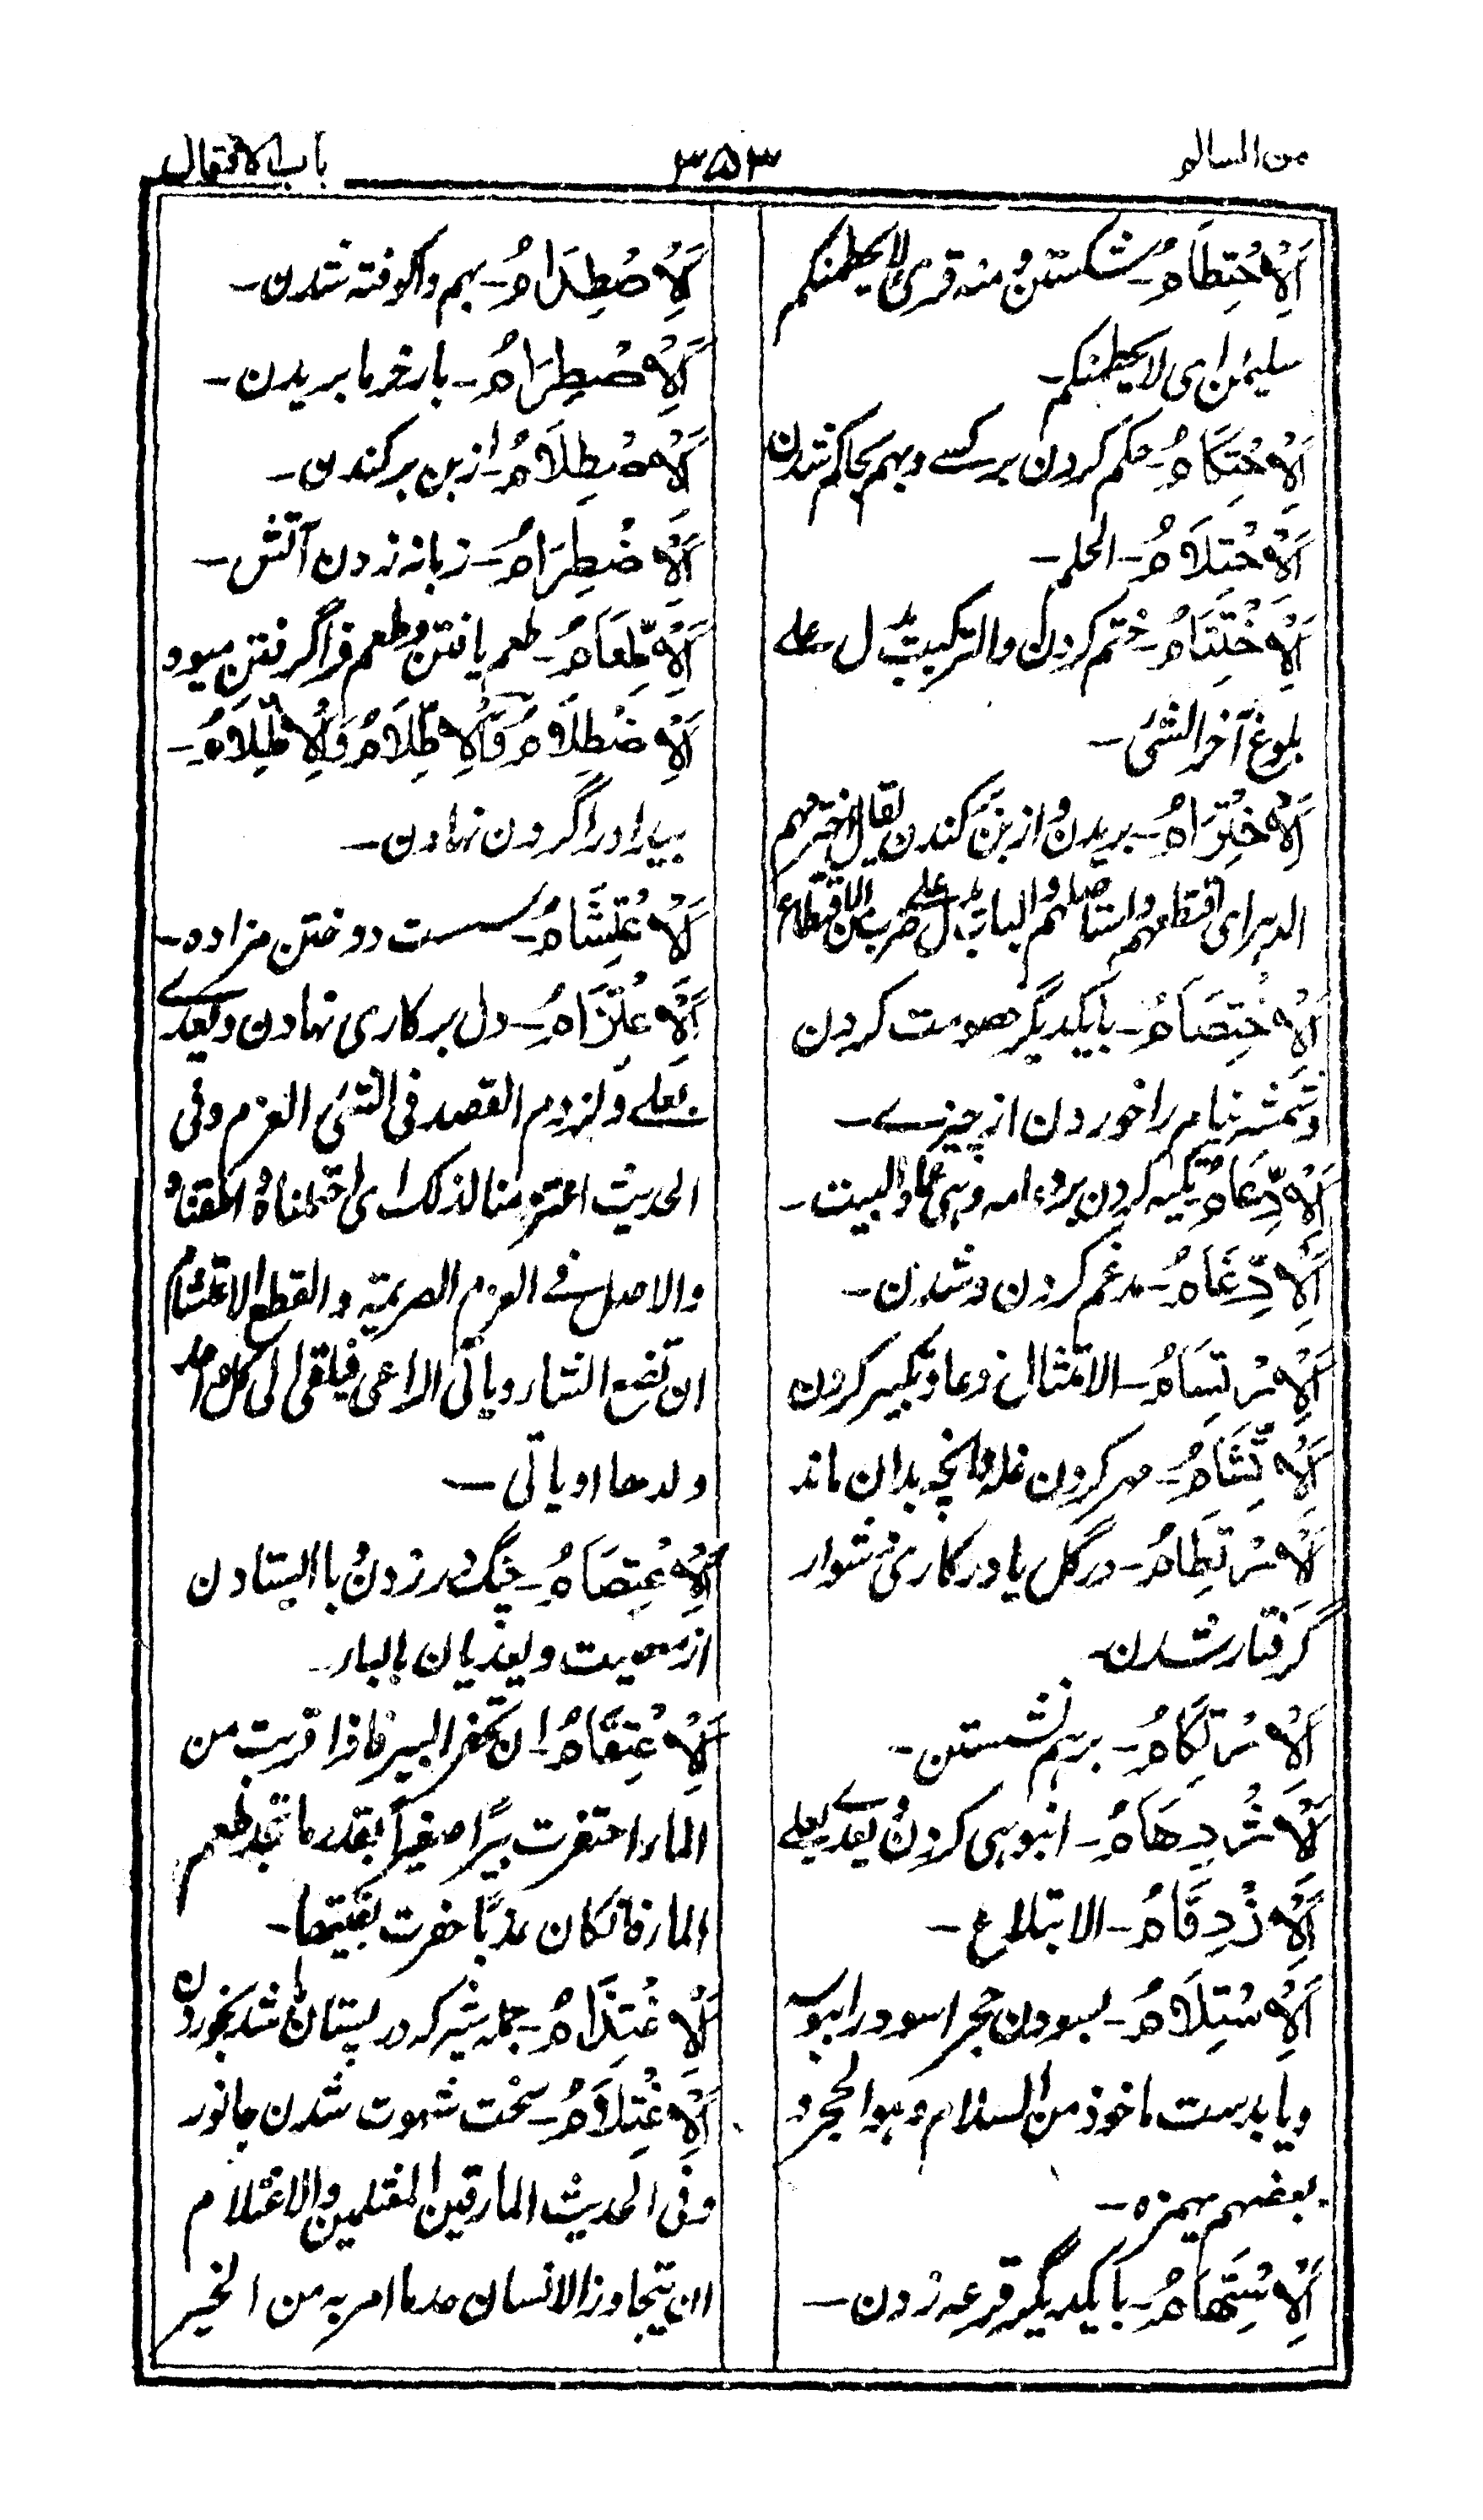 من السالم ٣٥٣ باب الافتعال
اَلْاِحْتِطَامُ۔ شکستن و منه قرئ لایحطمنکم
سلیمٰن ای لایحطمنکم۔
اَلْاِحْتِكَامُ۔ حکم کردن بر کسے و بهم بحاکم شدن
اَلْاِحْتِلَامُ۔ الحلم۔
اَلْاِخْتِتَامُ۔ ختم کردن والترکیب یدل علے
بلوغ آخر الشئ۔
اَلْاِخْتِرَامُ۔ بریدن و از بن کندن یقال اخترمهم
الدهر ای اقتطعهم و استاصلهم والباب یدل علے ضرب من الاقتطاع
اَلْاِخْتِصَامُ۔ بایکدیگر خصومت کردن
و شمشیر نیام را خوردن از چیزے۔
اَلْاِدِّعَامُ۔ تکیه کردن بر دعامه و هی عماد البیت۔
اَلْاِدِّغَامُ۔ مدغم کردن و شدن۔
اَلْاِرْتِسَامُ۔ الامتثال و دعا و تکبیر کردن
اَلْاِرْتِشَامُ۔ مهر کردن غله و آنچه بدان ماند
اَلْاِرْتِطَامُ۔ در گل یا در کاری دشوار
گرفتار شدن۔
اَلْاِرْتِكَامُ۔ برهم نشستن۔
اَلْاِزْدِحَامُ۔ انبوهی کردن و یعدے بعلے
اَلْاِزْدِقَامُ۔ الابتلاع۔
اَلْاِسْتِلَامُ۔ بسودن حجر اسود را ببوسه
و یا بدست ماخوذ من السلام و هو الحجر و
بعضهم یهمزه۔
اَلْاِسْتِهَامُ۔ بایکدیگر قرعه زدن۔
اَلْاِصْطِدَامُ۔ بهم واکوفته شدن۔
اَلْاِصْطِرَامُ۔ بار خرما بریدن۔
اَلْاِصْطِلَامُ۔ از بن برکندن۔
اَلْاِضْطِرَامُ۔ زبانه زدن آتش۔
اَلْاِطِّعَامُ۔ طعم یافتن و طعم فراگرفتن میوه
اَلْاِضْطِلَامُ وَالْاِطِّلَامُ وَالْاِظِّلَامُ۔
بیداد را گردن نهادن۔
اَلْاِعْتِشَامُ۔ سست دوختن مزاده۔
اَلْاِعْتِزَامُ۔ دل بر کاری نهادن و یعدے
بعلے و لزوم القصد فی الشئ العزم و فی
الحدیث اعتزمنا لذلک ای احتملناه و اطقناه
والاصل فے العزم الصریمة والقطع الاعتشام
ان تضع الشاء و یاتی الراعی فیلقی الی کل واحد
ولدها او یاتی۔
اَلْاِعْتِصَامُ۔ چنگ در زدن و باایستادن
از معصیت و یعدیان بالباء۔
اَلْاِعْتِقَامُ۔ ان تحفر البیر فاذا قربت من
الماء احتفرت بیرًا صغیرًا بقدر ما تجد طعم
الماء فان کان عذبًا حفرت بقیتها۔
اَلْاِغْتِذَامُ۔ جمله شیر که در پستان باشد بخوردن
اَلْاِغْتِلَامُ۔ سخت شهوت شدن جانور
و فی الحدیث المارقین المغتلمین والاغتلام
ان یتجاوز الانسان حد ما امر به من الخیر